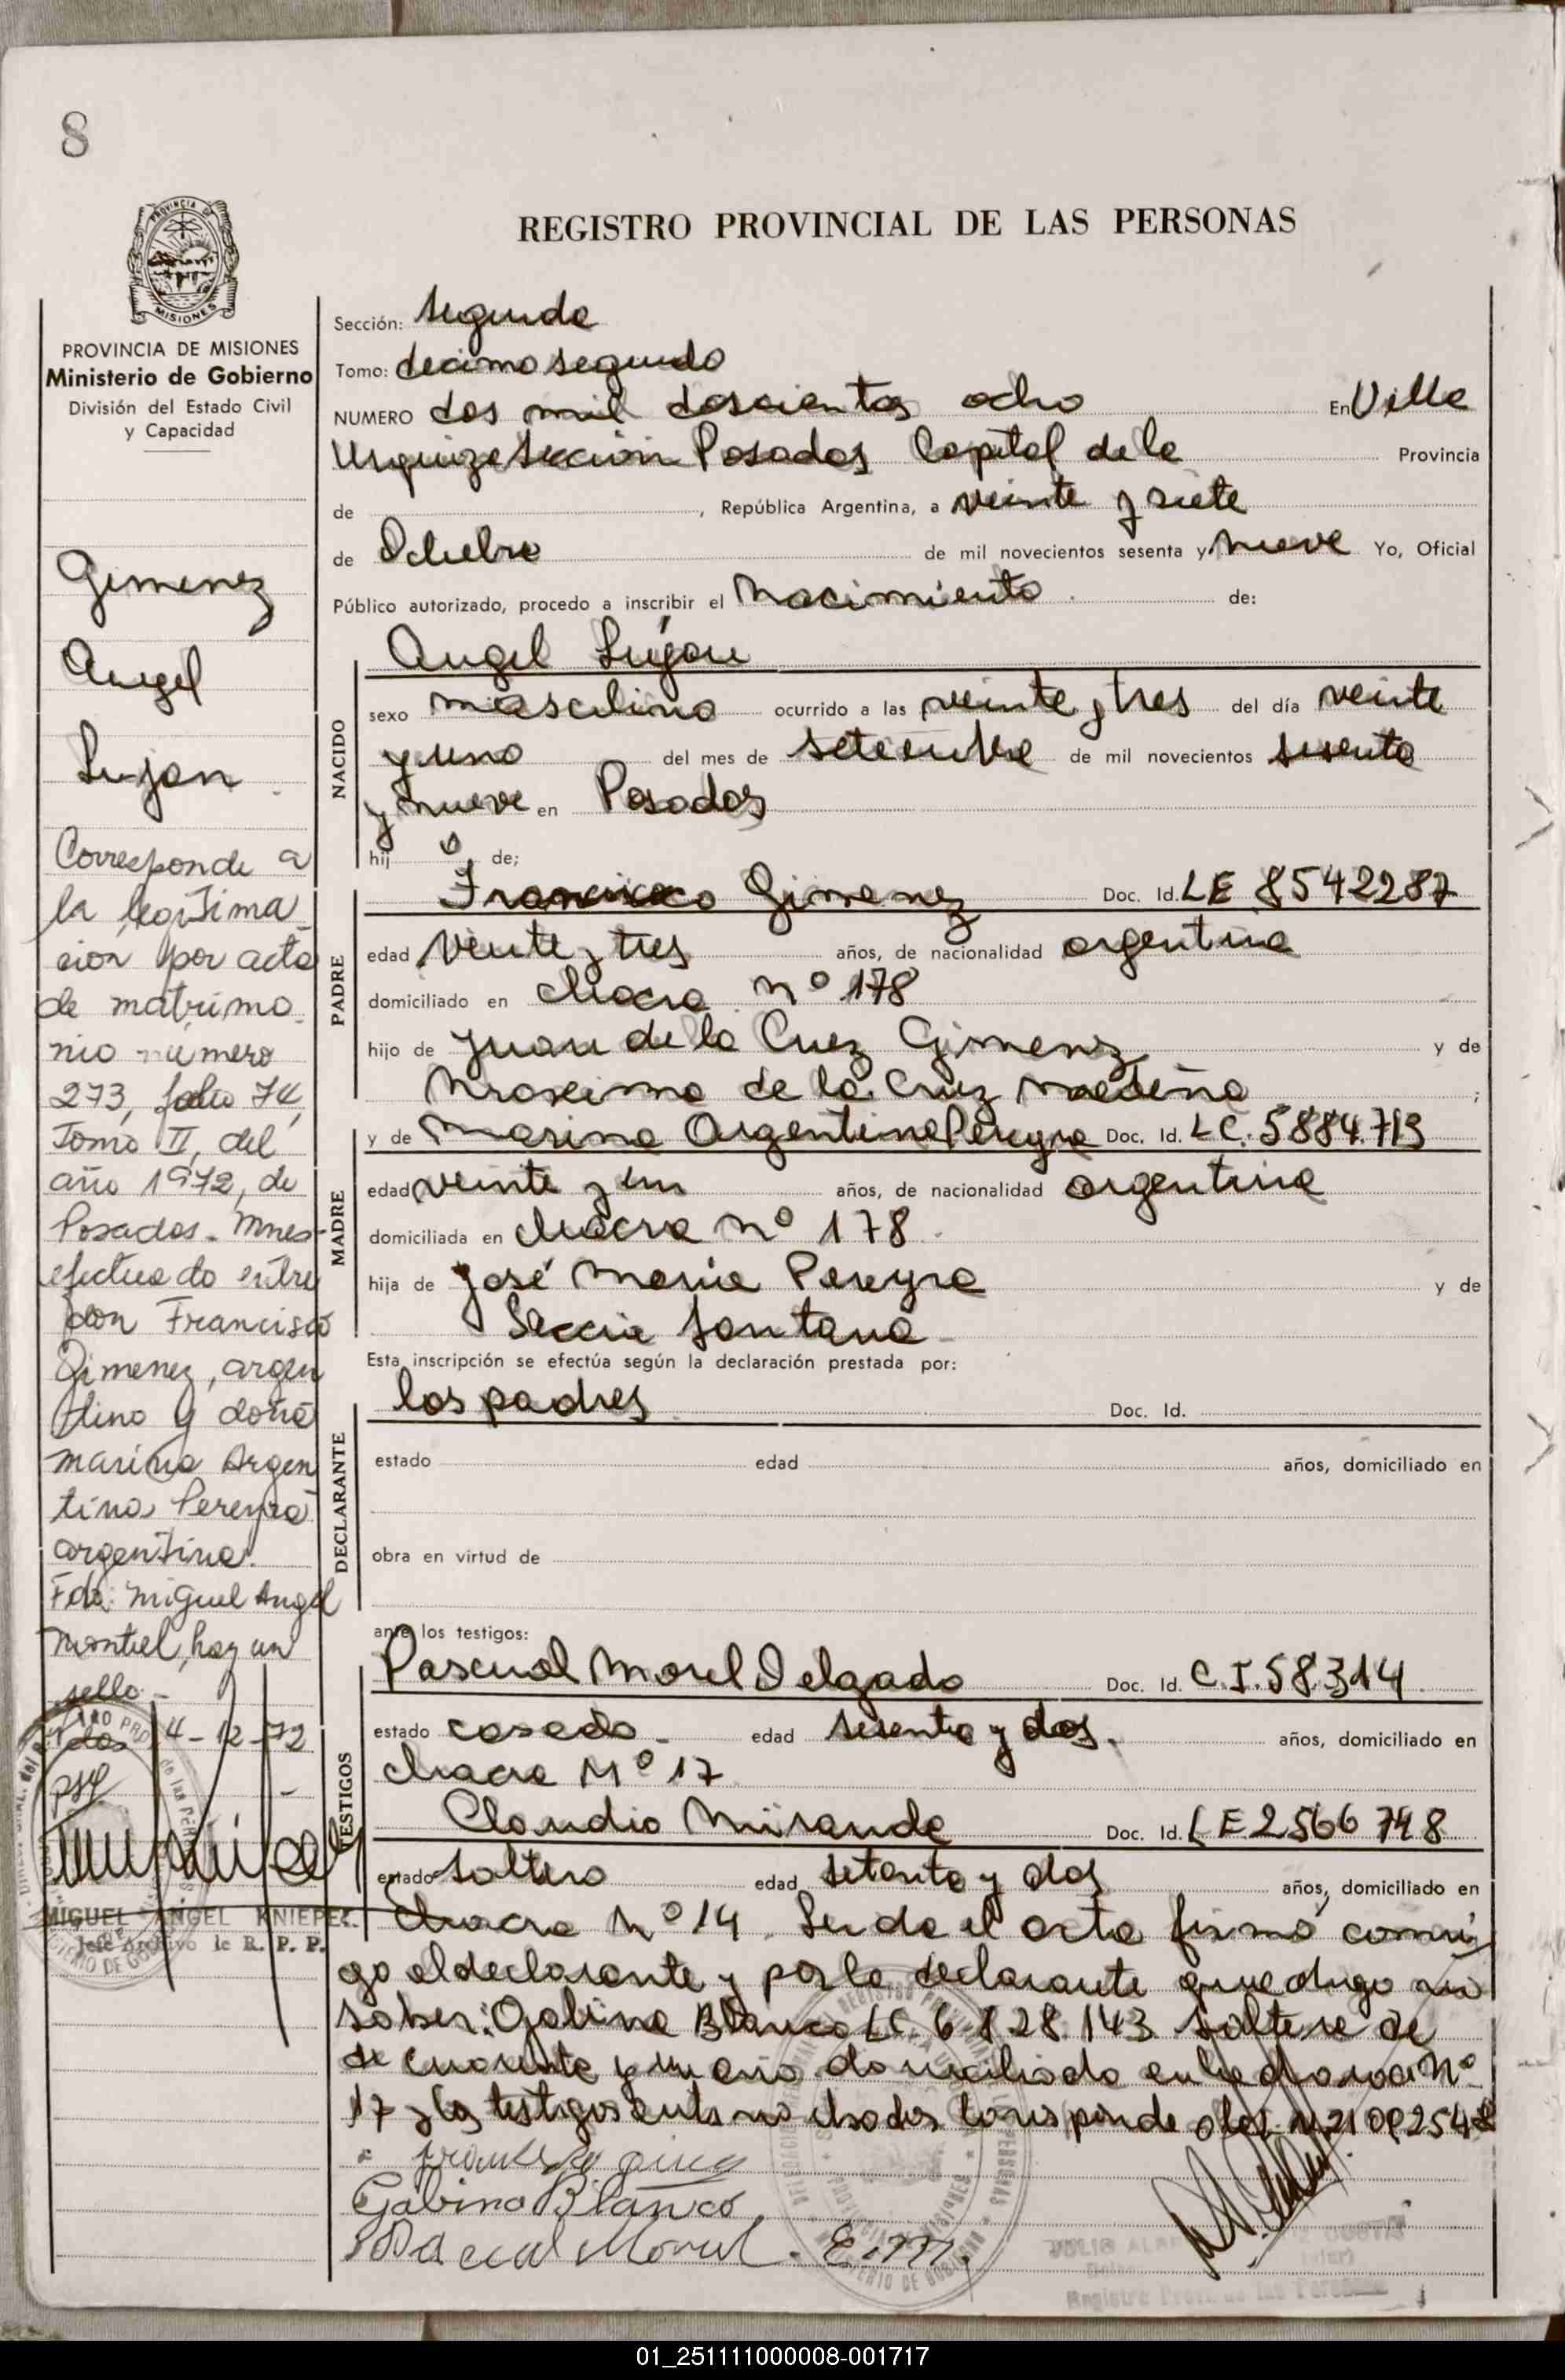 8
REGISTRO PROVINCIAL DE LAS PERSONAS
PROVINCIA DE MISIONES
Ministerio de Gobierno
División del Estado Civil
y Capacidad
Gimenez
Angel
Lujan
Corresponde a
la legitima
cion por acta
de matrimo
nio número
273, folio 74,
Tomo II, del
año 1972, de
Posadas. Mnes-
efectuado entre
don Francisco
Gimenez, argen
tino y doña
Marina Argen
tina Pereyra
argentina.
Fdo: Miguel Angel
Montiel, hay un
sello.-
Pdas 4-12-72
MIGUEL ANGEL KNIEPE
Jefe Archivo de R. P. P.
Sección: Segunda
Tomo: decimo segundo
NUMERO dos mil doscientos ocho En Villa
Urquiza Sección Posadas Capital de la Provincia
de , República Argentina, a veinte y siete
de Octubre de mil novecientos sesenta y nueve Yo, Oficial
Público autorizado, procedo a inscribir el Nacimiento de:
NACIDO
Angel Luján
sexo masculino ocurrido a las veinte y tres del día veinte
y uno del mes de setiembre de mil novecientos sesenta
y nueve en Posadas
hij o de;
PADRE
Francisco Gimenez Doc. Id. LE 8542287
edad veinte y tres años, de nacionalidad argentina
domiciliado en chacra nº 178
hijo de Juan de la Cruz Gimenez y de
de la Cruz ;
MADRE
y de Marina Argentina Pereyra Doc. Id. LC. 5884.719
edad veinte y un años, de nacionalidad argentina
domiciliada en chacra nº 178
hija de José Maria Pereyra y de
Santana
Esta inscripción se efectúa según la declaración prestada por:
DECLARANTE
los padres Doc. Id.
estado edad años, domiciliado en
obra en virtud de
ante los testigos:
TESTIGOS
Pascual Morel Delgado Doc. Id. C.I. 58.314
estado casado edad sesenta y dos. años, domiciliado en
chacra Nº 17
Claudio Miranda Doc. Id. LE 2566 748
estado soltero edad setenta y dos años, domiciliado en
Chacra Nº 14. Leida el acta firmó conmi
go el declarante y por la declarante que dijo no
saber: Gabina Blanco LC 6.828.143 soltera de
de cuarenta y un domiciliada en la chacra Nº
17 y los testigos
Gabina Blanco
Pascual Morel. E.M.
01_251111000008-001717